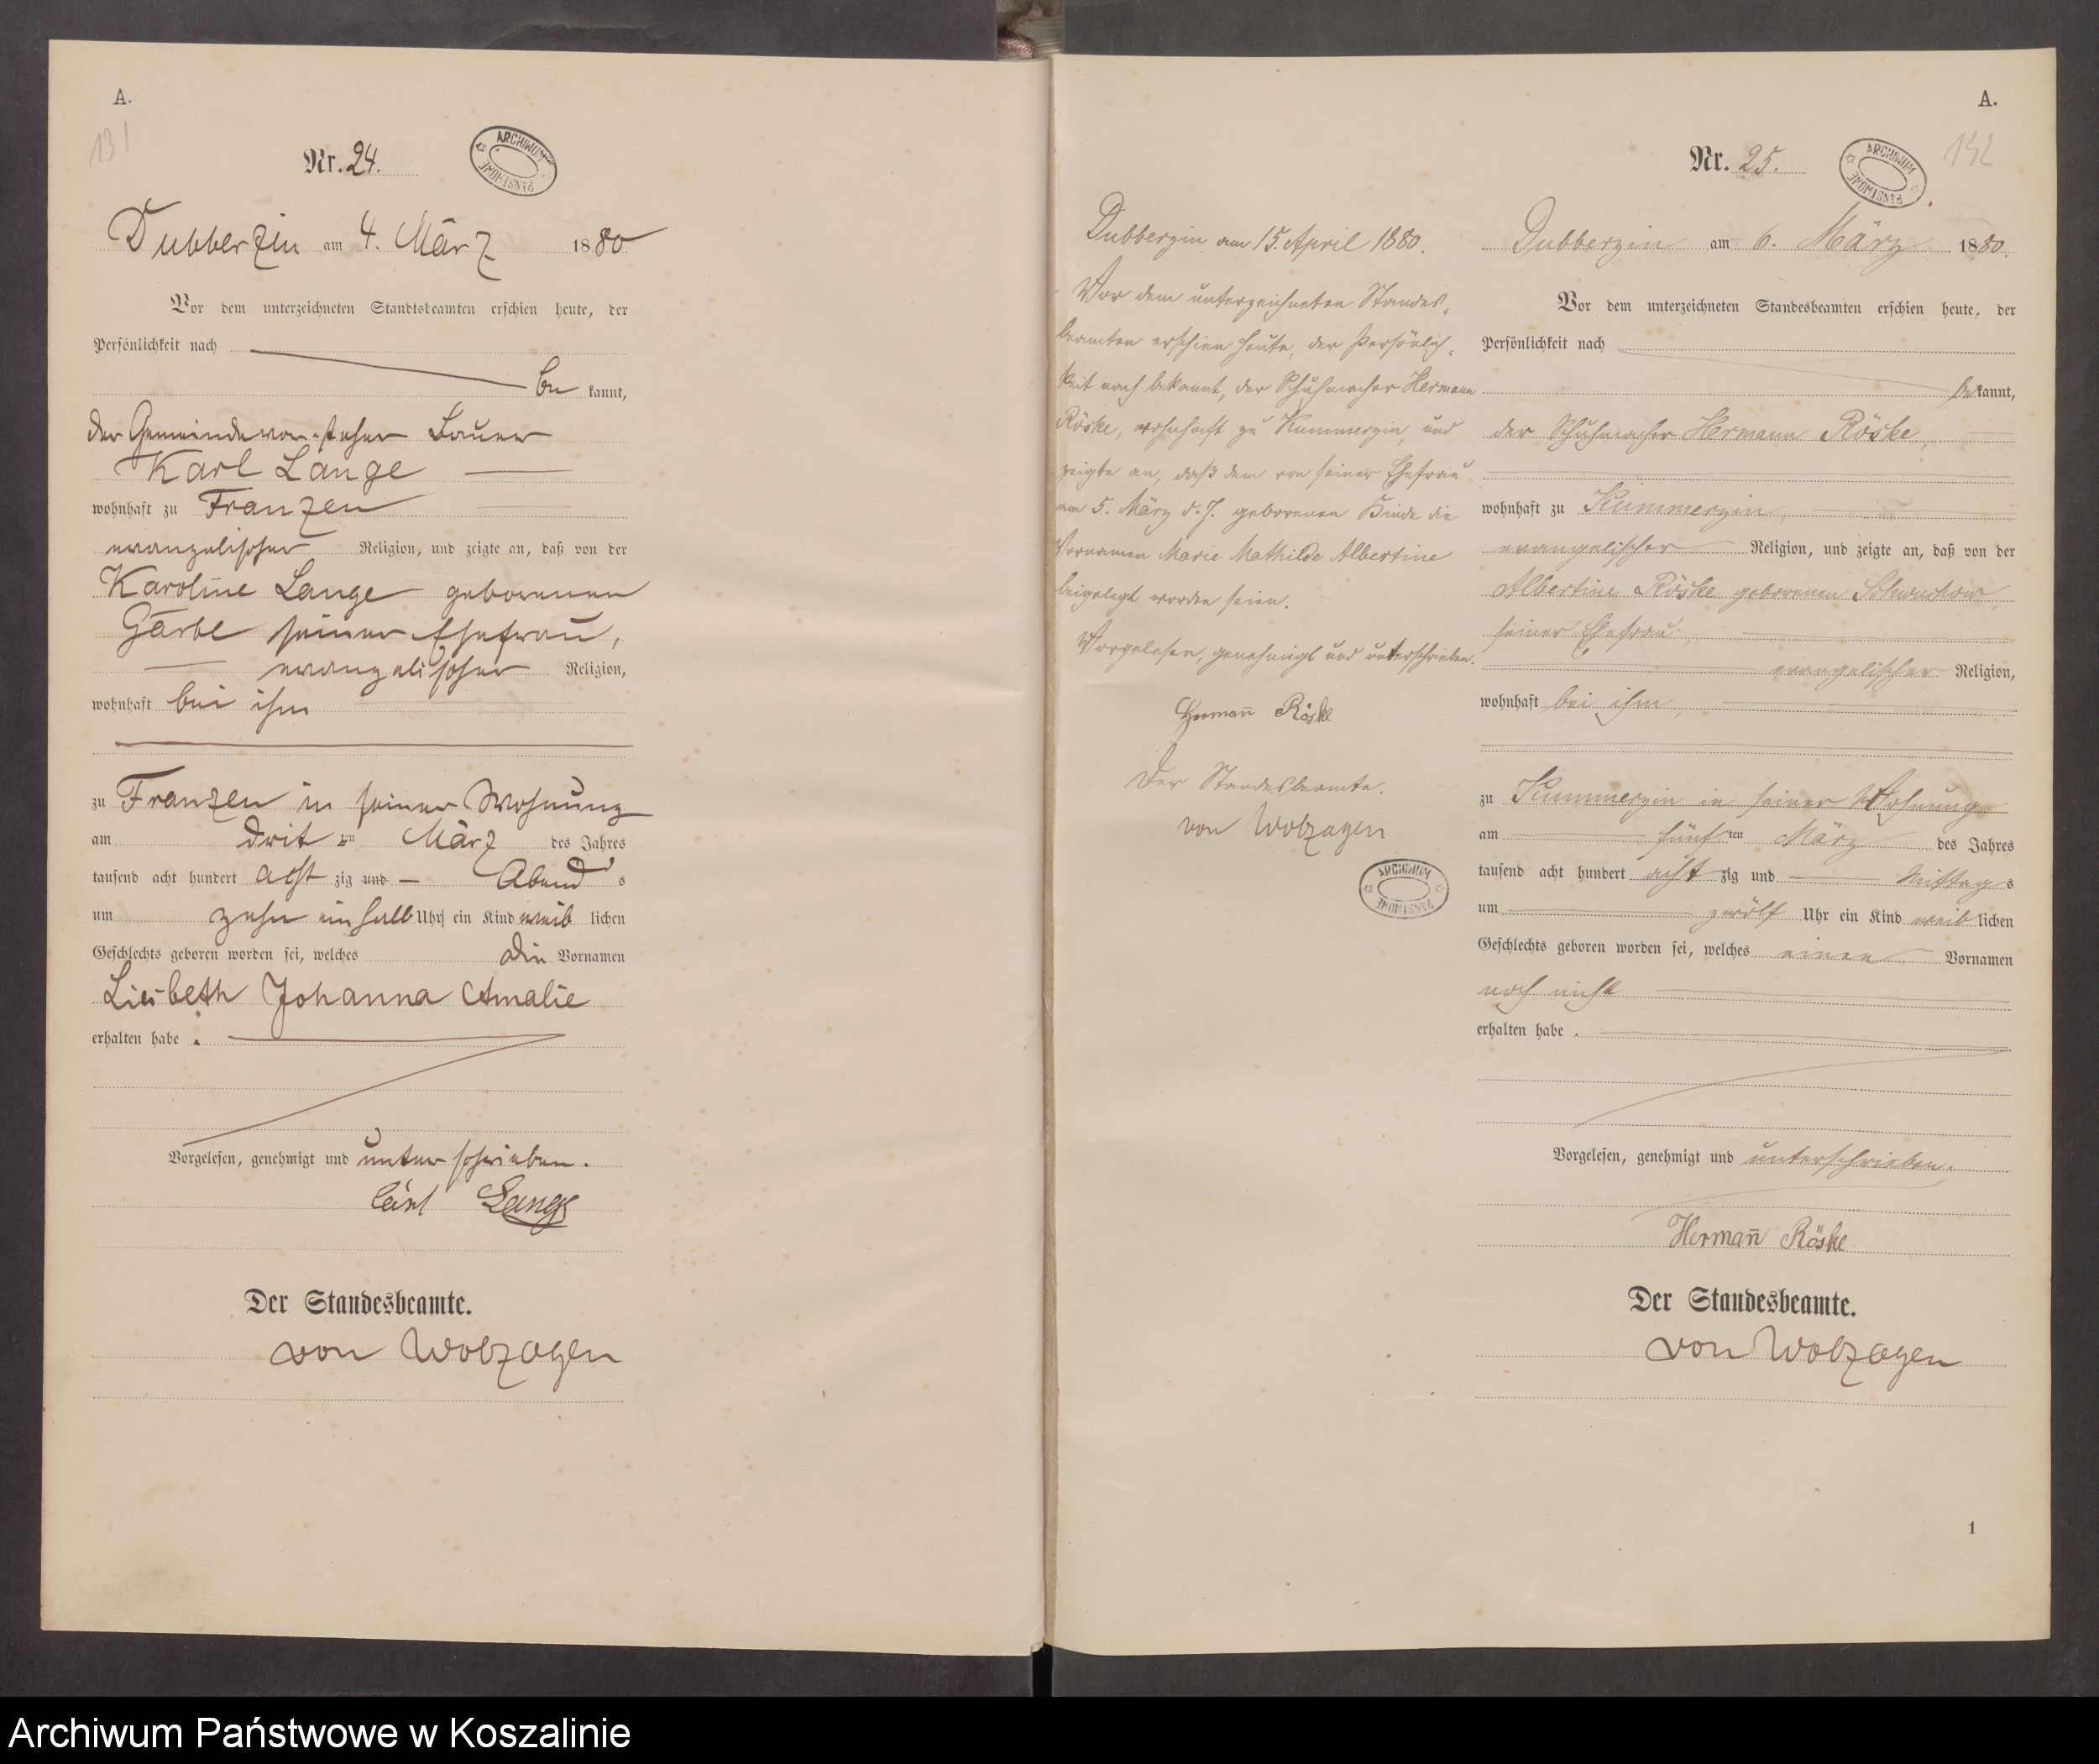 A.
131
Nr. 24.
ARCHIWUM PAŃSTWOWE
Dubberzin am 4. März 1880
Vor dem unterzeichneten Standtsbeamten erschien heute, der
Persönlichkeit nach
be kannt,
der Gemeindevorsteher Bauer
Karl Lange
wohnhaft zu Franzen
evangelischer Religion, und zeigte an, daß von der
Karoline Lange geborenen
Garbe seiner Ehefrau,
evangelischer Religion,
wohnhaft bei ihm
zu Franzen in seiner Wohnung
am drit ten März des Jahres
tausend acht hundert acht zig und — Abend s
um zehn ein halb Uhr ein Kind weib lichen
Geschlechts geboren worden sei, welches die Vornamen
Liesbeth Johanna Amalie
erhalten habe.
Vorgelesen, genehmigt und unterschrieben.
Carl Lange
Der Standesbeamte.
von Wolzogen
Dubberzin am 15. April 1880.
Vor dem unterzeichneten Standes-
beamten erschien heute, der Persönlich-
keit nach bekannt, der Schuhmacher Hermann
Röske, wohnhaft zu Kummerzin, und
zeigte an, daß dem von seiner Ehefrau
am 5. März d. J. geborenen Kinde die
Vornamen Marie Mathilde Albertine
beigelegt worden seien.
Vorgelesen, genehmigt und unterschrieben.
Hermañ Röske
Der Standesbeamte.
von Wolzogen
ARCHIWUM PAŃSTWOWE
A.
132
Nr. 25.
ARCHIWUM PAŃSTWOWE
Dubberzin am 6. März 1880.
Vor dem unterzeichneten Standesbeamten erschien heute, der
Persönlichkeit nach
be kannt,
der Schuhmacher Hermann Röske,
wohnhaft zu Kummerzin,
evangelischer Religion, und zeigte an, daß von der
Albertine Röske geborenen Schwuchow,
seiner Ehefrau,
evangelischer Religion,
wohnhaft bei ihm,
zu Kummerzin in seiner Wohnung
am fünf ten März des Jahres
tausend acht hundert acht zig und Mittag s
um zwölf Uhr ein Kind weib lichen
Geschlechts geboren worden sei, welches einen Vornamen
noch nicht
erhalten habe.
Vorgelesen, genehmigt und unterschrieben.
Hermañ Röske
Der Standesbeamte.
von Wolzogen
1
Archiwum Państwowe w Koszalinie